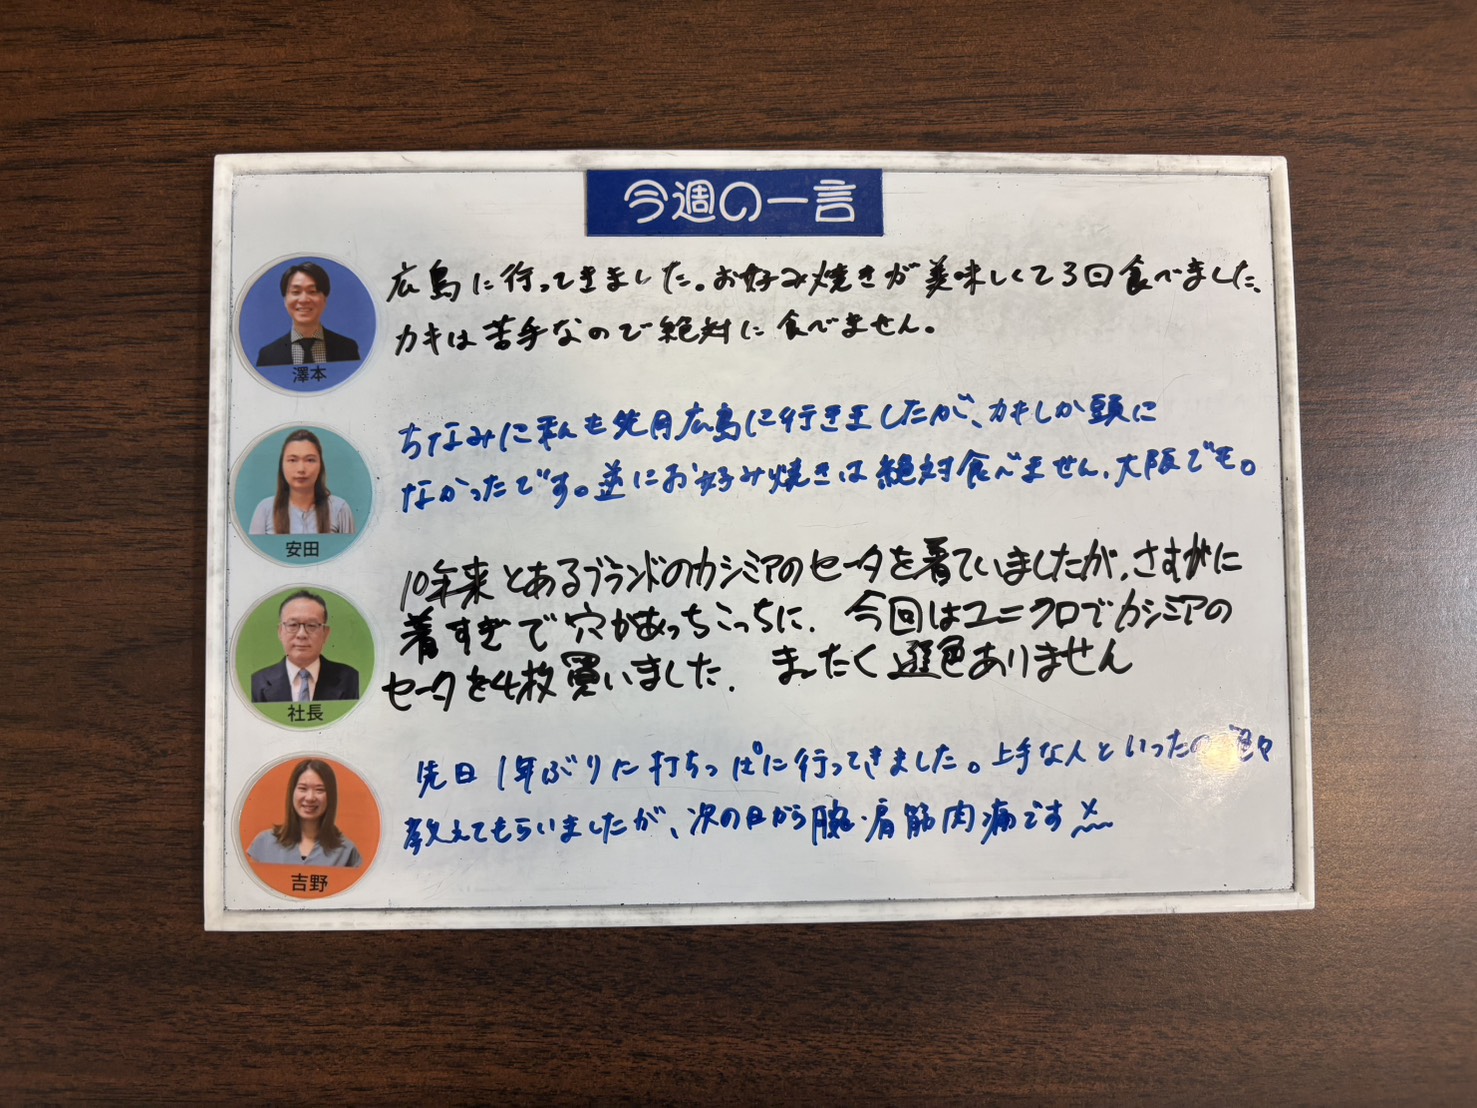 今週の一言
広島に行ってきました。お好み焼きが美味しくて3回食べました。
カキは苦手なので絶対に食べません。
澤本
ちなみに私も先月広島に行きましたが、カキしか頭に
なかったです。逆にお好み焼きは絶対食べません。大阪でも。
安田
10年来とあるブランドのカシミアのセータを着ていましたが、さすがに
着すぎで穴があっちこっちに. 今回はユニクロでカシミアの
セータを4枚買いました. まったく遜色ありません
社長
先日1年ぶりに打ちっぱに行ってきました。上手な人といったので色々
教えてもらいましたが、次の日から腕・肩筋肉痛です
吉野